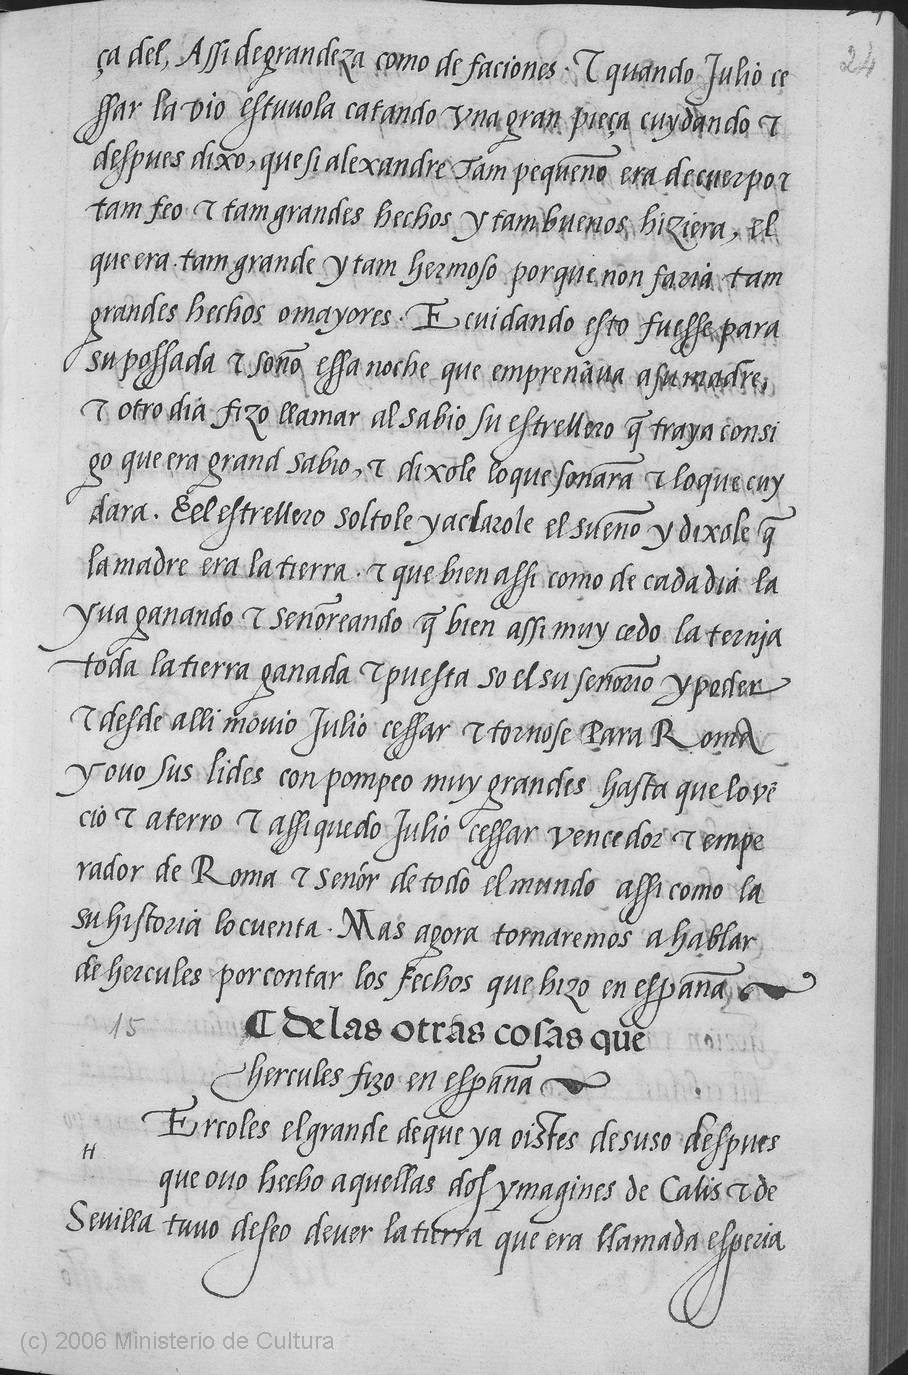 24
ça del, Assi de grandeza como de faciones · τ quando Julio ce
ssar la vio estuuola catando vna gran pieça cuydando τ
despues dixo, que si alexandre Tam pequeño era de cuerpo τ
tam feo τ tam grandes hechos y tam buenos hiziera, el
que era tam grande y tam hermoso porque non faria tam
grandes hechos o mayores · E cuidando esto fuesse para
su possada τ soño essa noche que emprenaua a su madre,
τ otro dia fizo llamar al sabio su estrellero q̃ traya consi
go que era grand sabio, τ dixole lo que soñara τ lo que cuy
dara. E el estrellero soltole y aclarole el sueño y dixole q̃
la madre era la tierra · τ que bien assi como de cada dia la
yua ganando τ señoreando q̃ bien assi muy cedo la ternja
toda la tierra ganada τ puesta so el su señorio y poder
τ desde alli mouio Julio cessar τ tornose Para Roma
y ouo sus lides con pompeo muy grandes hasta que lo vẽ
cio τ aterro τ assi quedo Julio cessar vencedor τ empe
rador de Roma τ señor de todo el mundo assi como la
su historia lo cuenta · Mas agora tornaremos a hablar
de hercules por contar los fechos que hizo en españa
15 ¶ De las otras cosas que
hercules fizo en españa
Ercoles el grande de que ya oistes de suso despues
H que ouo hecho aquellas dos ymagines de Calis τ de
Seuilla tuuo deseo de ver la tierra que era llamada esperia
(c) 2006 Ministerio de Cultura